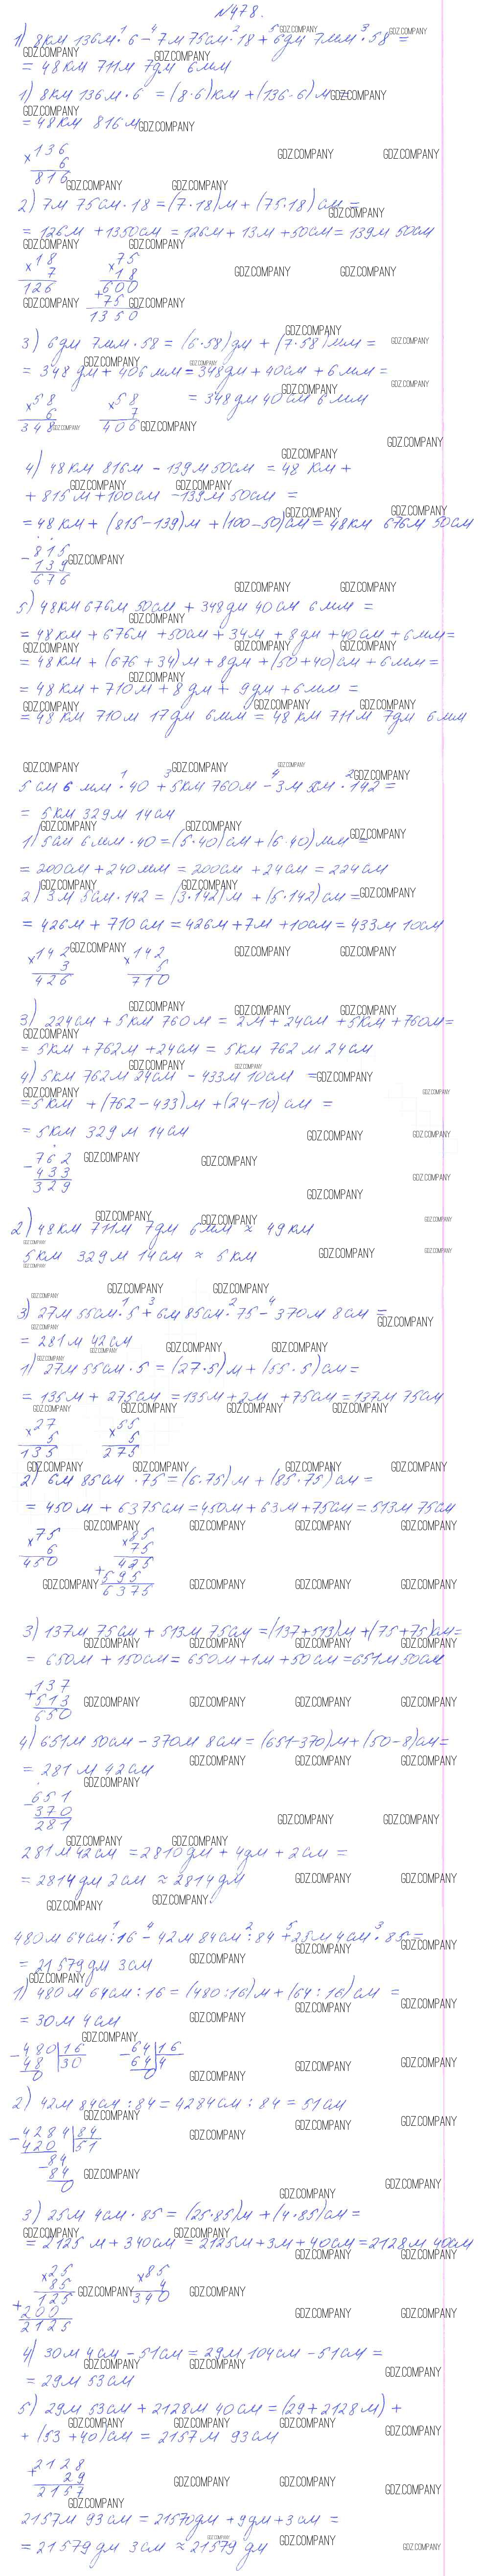 №478.
1) 8км 136м·6 - 7м 75см·18 + 6дм 7мм·58 =
= 48км 711м 7дм 6мм
1) 8км 136м·6 = (8·6)км + (136·6)м =
= 48км 816м
×136
6
816
2) 7м 75см·18 = (7·18)м + (75·18)см =
= 126м + 1350см = 126м + 13м + 50см = 139м 50см
×18 ×75
7 18
126 600
+75
1350
3) 6дм 7мм·58 = (6·58)дм + (7·58)мм =
= 348дм + 406мм = 348дм + 40см + 6мм =
= 348дм 40см 6мм
×58 ×58
6 7
348 406
4) 48км 816м - 139м 50см = 48 км +
+ 815м + 100см - 139м 50см =
= 48км + (815-139)м + (100-50)см = 48км 676м 50см
-815
139
676
5) 48км 676м 50см + 348дм 40см 6мм =
= 48км + 676м + 50см + 34м + 8дм + 40см + 6мм =
= 48км + (676+34)м + 8дм + (50+40)см + 6мм =
= 48км + 710м + 8дм + 9дм + 6мм =
= 48км 710м 17дм 6мм = 48км 711м 7дм 6мм
5см 6мм·40 + 5км 760м - 3м 5см·142 =
= 5км 329м 14см
1) 5см 6мм·40 = (5·40)см + (6·40)мм =
= 200см + 240мм = 200см + 24см = 224см
2) 3м 5см·142 = (3·142)м + (5·142)см =
= 426м + 710см = 426м + 7м + 10см = 433м 10см
×142 ×142
3 5
426 710
3) 224см + 5км 760м = 2м + 24см + 5км + 760м =
= 5км + 762м + 24см = 5км 762м 24см
4) 5км 762м 24см - 433м 10см =
= 5км + (762-433)м + (24-10)см =
= 5км 329м 14см
-762
433
329
2) 48км 711м 7дм 6мм ≈ 49км
5км 329м 14см ≈ 5км
3) 27м 55см·5 + 6м 85см·75 - 370м 8см =
= 281м 42см
1) 27м 55см·5 = (27·5)м + (55·5)см =
= 135м + 275см = 135м + 2м + 75см = 137м 75см
×27 ×55
5 5
135 275
2) 6м 85см·75 = (6·75)м + (85·75)см =
= 450м + 6375см = 450м + 63м + 75см = 513м 75см
×75 ×85
6 75
450 425
+595
6375
3) 137м 75см + 513м 75см = (137+513)м + (75+75)см =
= 650м + 150см = 650м + 1м + 50см = 651м 50см
+137
513
650
4) 651м 50см - 370м 8см = (651-370)м + (50-8)см =
= 281м 42см
-651
370
281
281м 42см = 2810дм + 4дм + 2см =
= 2814дм 2см ≈ 2814дм
480м 64см:16 - 42м 84см:84 + 25м 4см·85 =
= 21579дм 3см
1) 480м 64см:16 = (480:16)м + (64:16)см =
= 30м 4см
-480|16 -64|16
48 |30 64|4
0 0
2) 42м 84см:84 = 4284см:84 = 51см
-4284|84
420 |51
-84
84
0
3) 25м 4см·85 = (25·85)м + (4·85)см =
= 2125м + 340см = 2125м + 3м + 40см = 2128м 40см
×25 ×85
85 4
125 340
+200
2125
4) 30м 4см - 51см = 29м 104см - 51см =
= 29м 53см
5) 29м 53см + 2128м 40см = (29+2128м) +
+ (53+40)см = 2157м 93см
+2128
29
2157
2157м 93см = 21570дм + 9дм + 3см =
= 21579дм 3см ≈ 21579дм